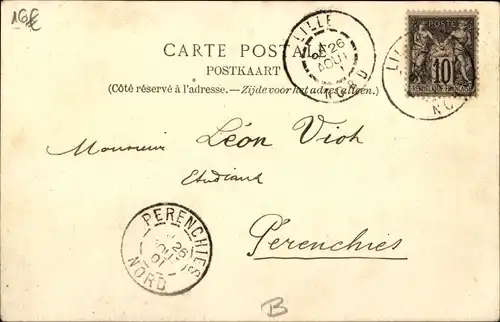 16€
CARTE POSTALE
POSTKAART
(Côté réservé à l'adresse.—Zijde voor het adres alleen.)
LILLE
26
AOUT
NORD
POSTE
10
LIL
Monsieur Léon Vioh
Etudiant
Pérenchies
PERENCHIES
26
01
NORD
B